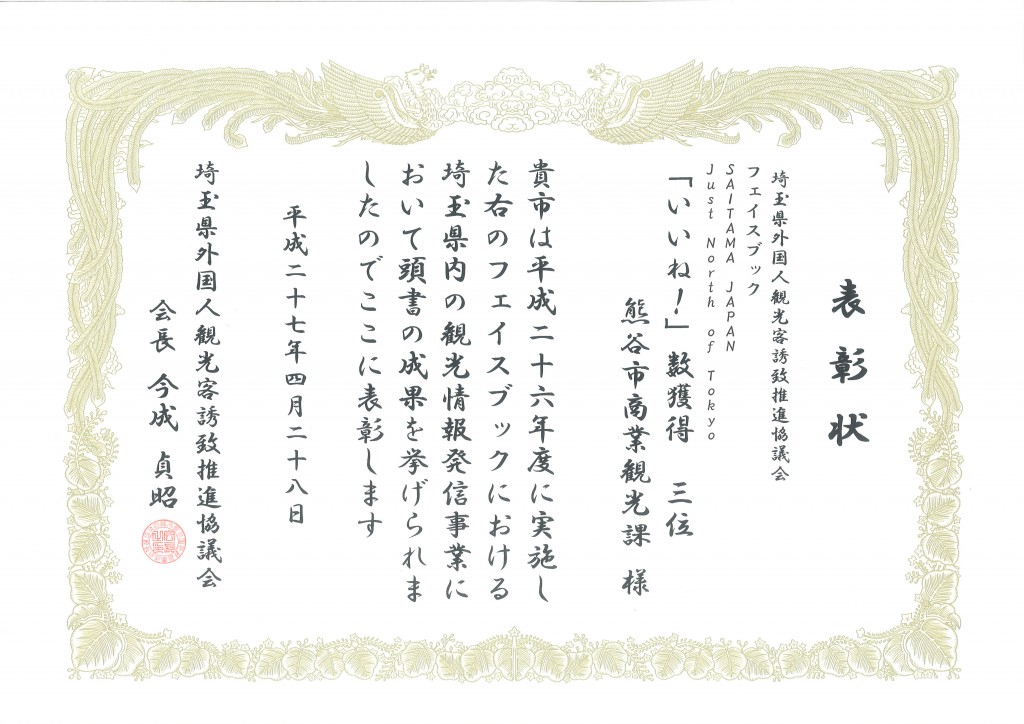 表彰状
埼玉県外国人観光客誘致推進協議会
フェイスブック
SAITAMA JAPAN
Just North of Tokyo
「いいね！」数獲得 三位
熊谷市商業観光課 様
貴市は平成二十六年度に実施し
た右のフェイスブックにおける
埼玉県内の観光情報発信事業に
おいて頭書の成果を挙げられま
したのでここに表彰します
平成二十七年四月二十八日
埼玉県外国人観光客誘致推進協議会
会長 今成 貞昭